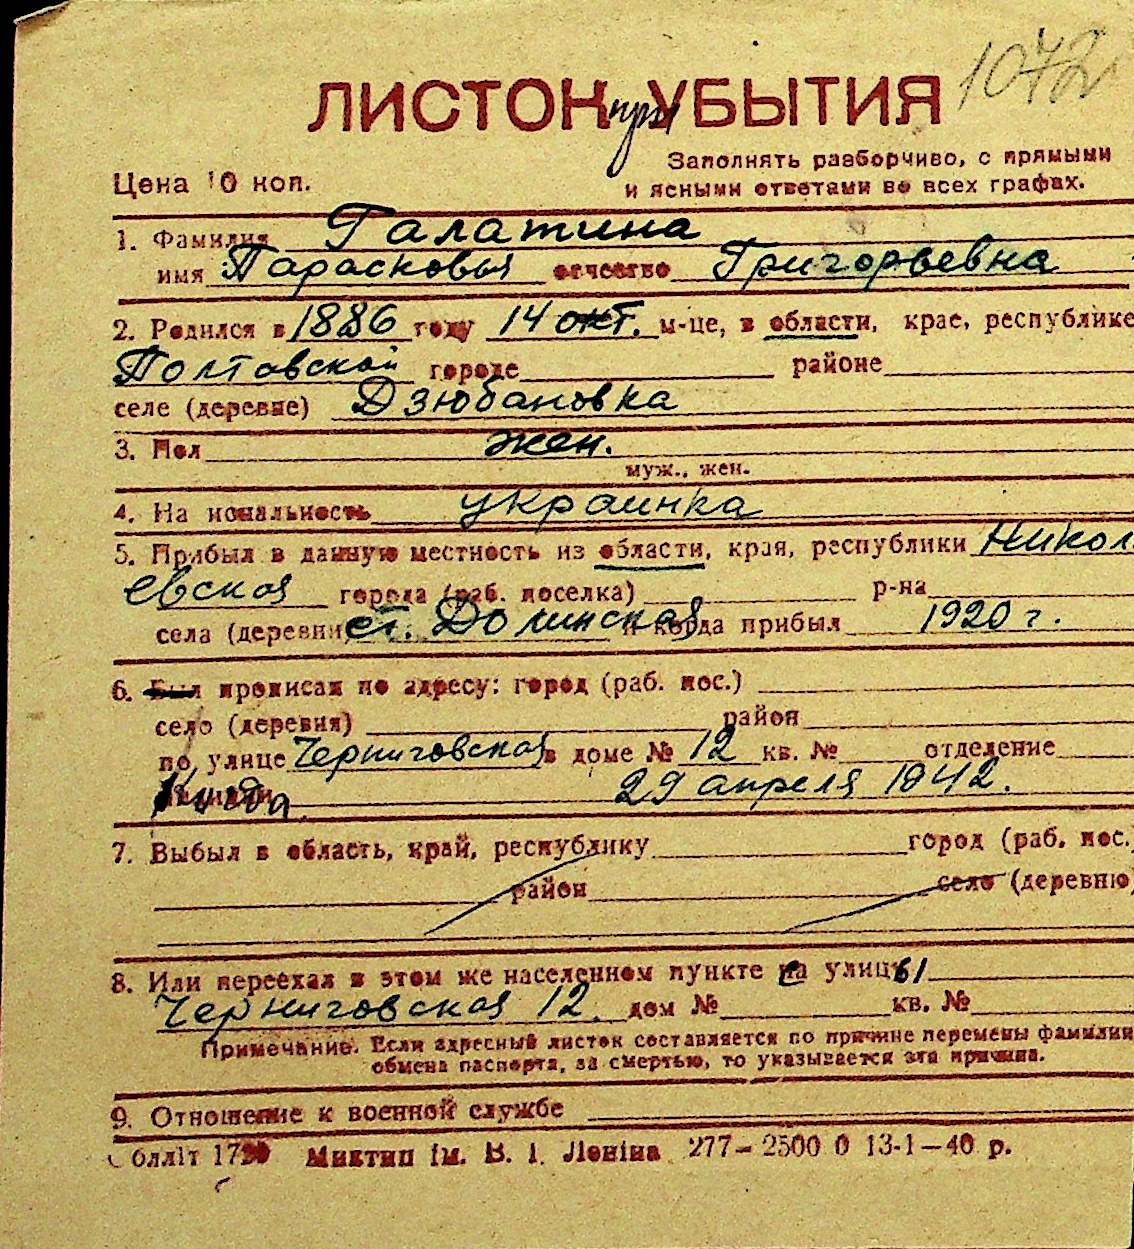 1072
ЛИСТОК при УБЫТИЯ
Заполнять разборчиво, с прямыми
Цена 10 коп.
и ясными ответами во всех графах.
1. Фамилия Галатина
имя Парасковья отчество Григорьевна
2. Родился в 1886 году 14 окт. м-це, в области, крае, республике
Полтавской городе районе
селе (деревне) Дзюбановка
3. Пол жен.
муж., жен.
4. Национальность украинка
5. Прибыл в данную местность из области, края, республики Никол
евская города (раб. поселка) р-на
села (деревни) ст. Долинская и когда прибыл 1920 г.
6. Был прописан по адресу: город (раб. пос.)
село (деревня) район
по улице Черниговская в доме № 12 кв. № отделение
Когда 29 апреля 1942.
7. Выбыл в область, край, республику город (раб. пос.)
район село (деревню)
8. Или переехал в этом же населенном пункте с улицы
Черниговская 12. дом № кв. №
Примечание. Если адресный листок составляется по причине перемены фамилии
обмена паспорта, за смертью, то указывается эта причина.
9. Отношение к военной службе
облліт Миктип ім. В. І. Леніна 277–2500 0 13-1–40 р.